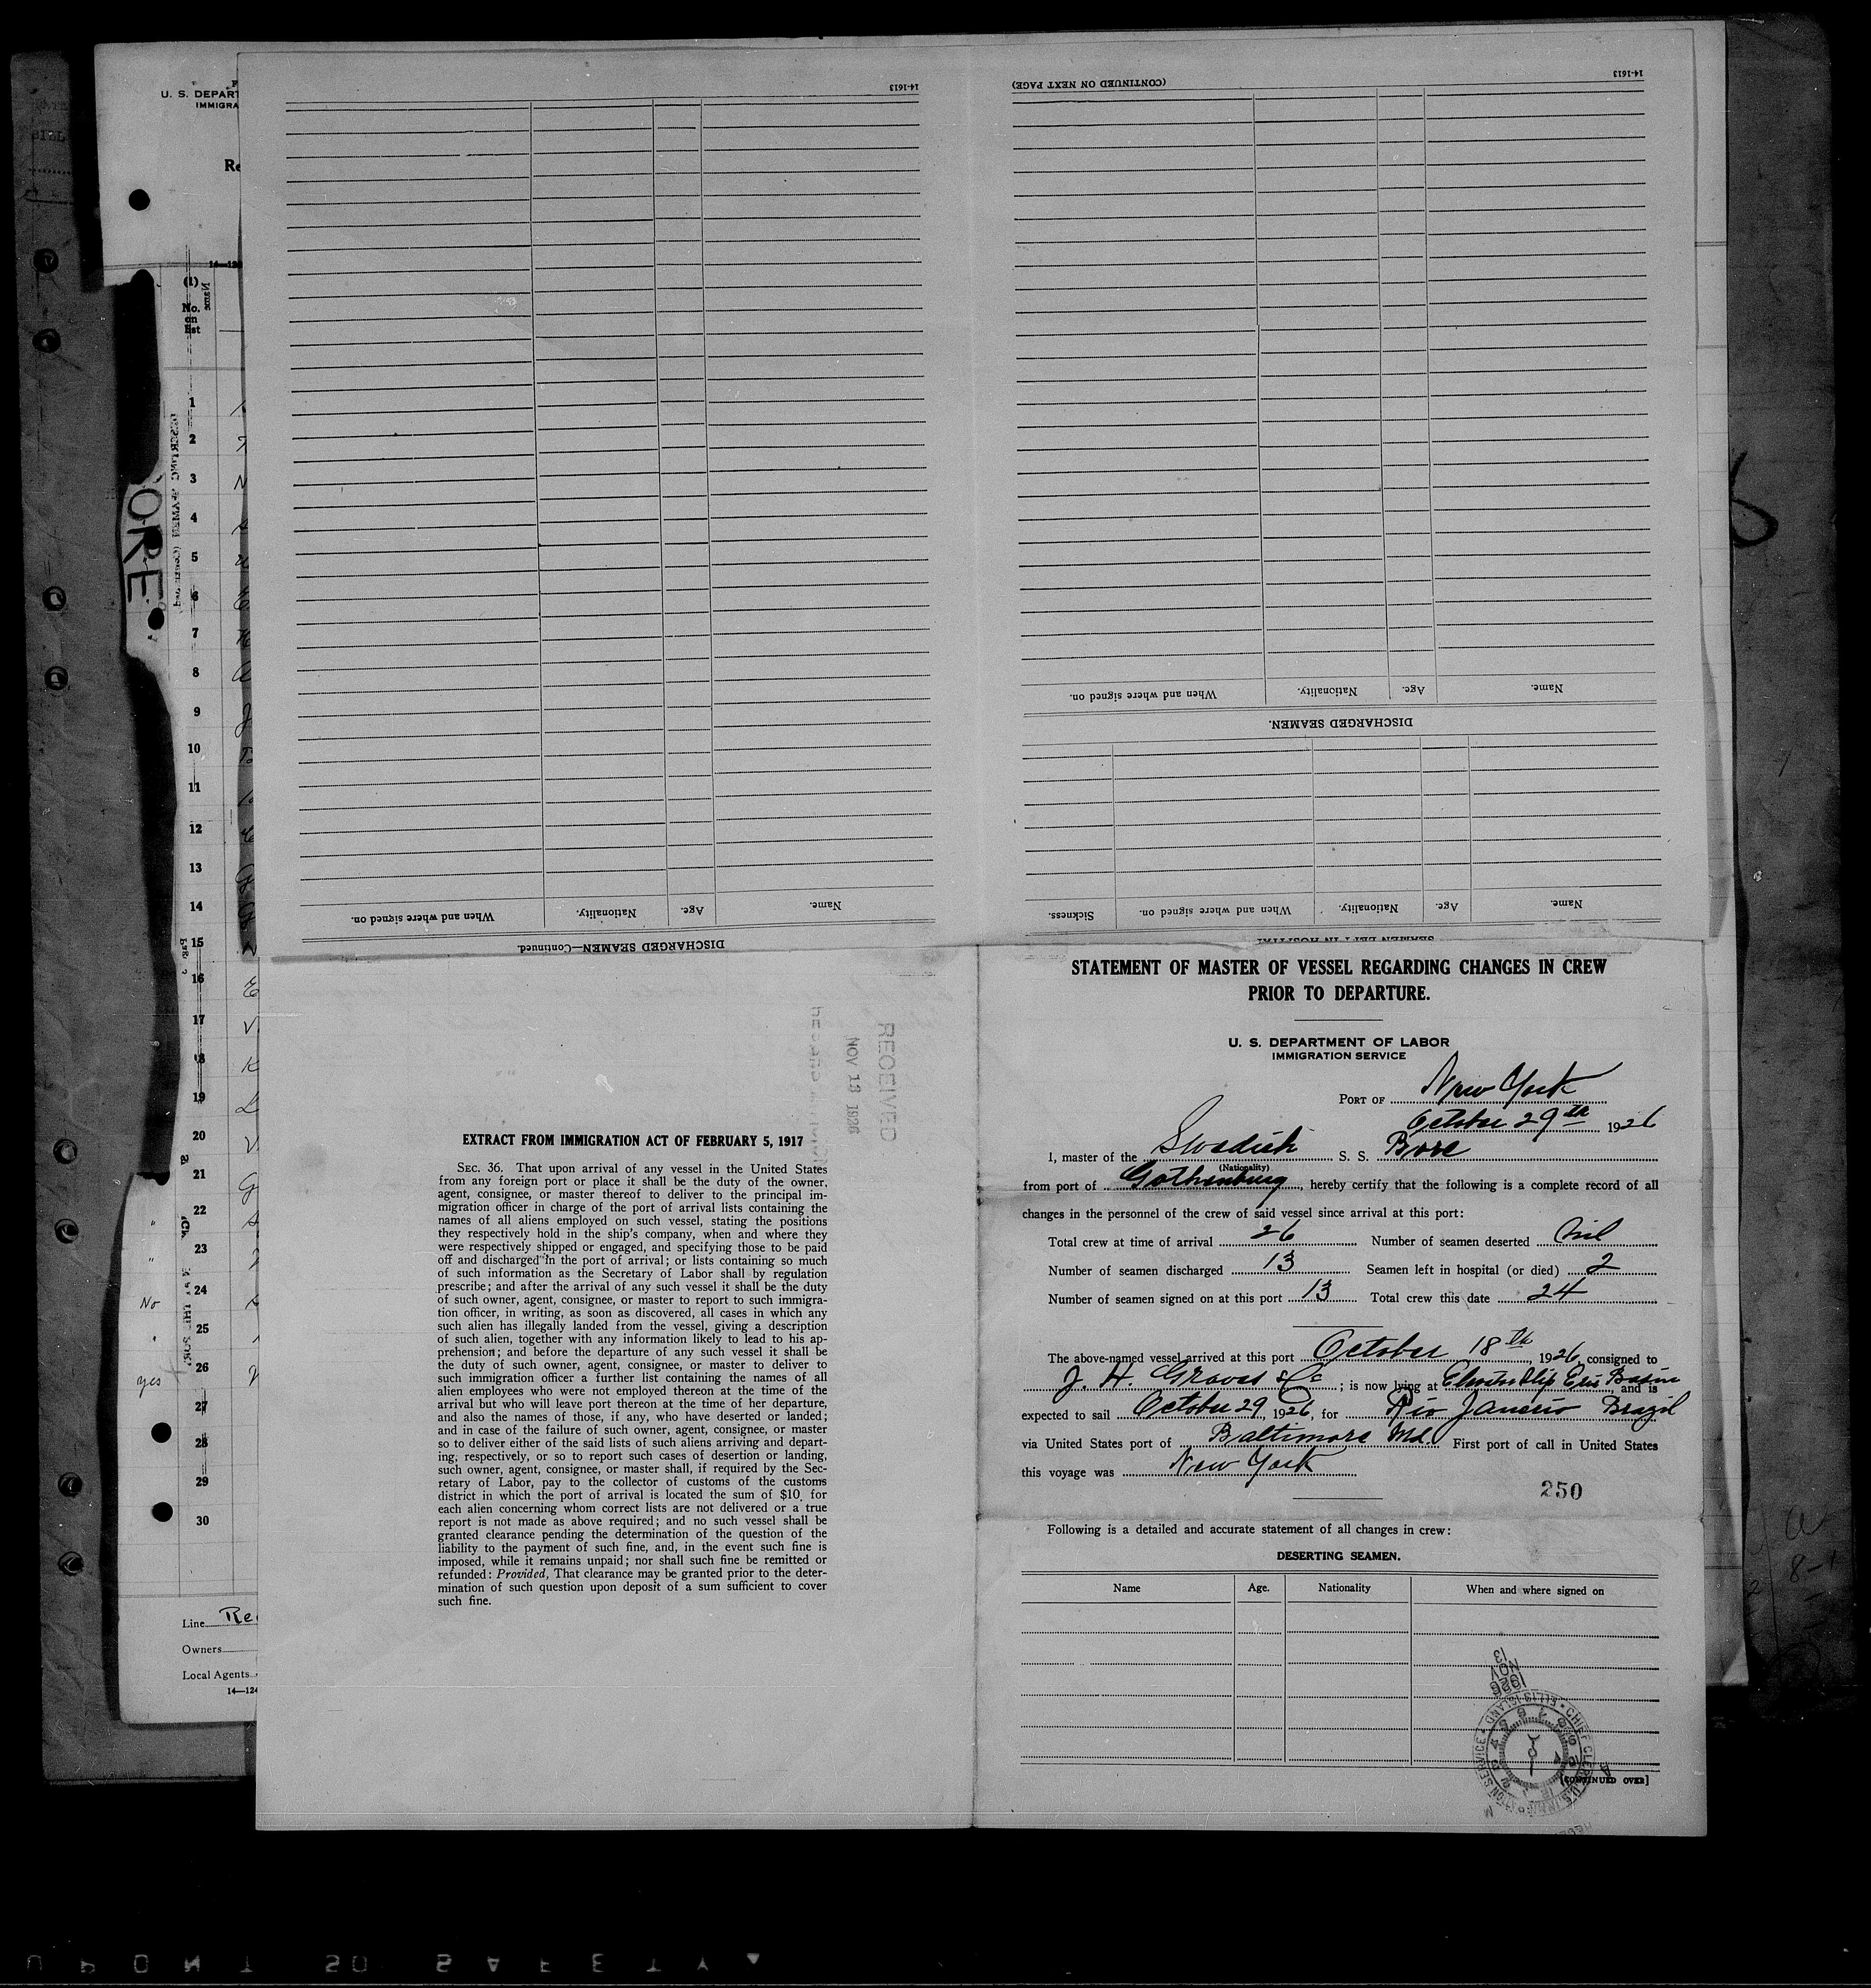 U. S. DEPART
IMMIGRA
Re
(1)
Name
No.
on
list
1
2
3
4
5
6
7
8
9
10
11
12
13
14
15
16
17
18
19
20
21
22
23
24
25
26
27
28
29
30
No
yes
ORE
Line
Owners
Local Agents
14—124
14-1613
DISCHARGED SEAMEN—Continued.
Name. Age. Nationality. When and where signed on.
14-1613
(CONTINUED ON NEXT PAGE)
SEAMEN LEFT IN HOSPITAL
Name. Age. Nationality. When and where signed on. Sickness.
DISCHARGED SEAMEN.
Name. Age. Nationality. When and where signed on.
RECEIVED
NOV 13 1926
EXTRACT FROM IMMIGRATION ACT OF FEBRUARY 5, 1917
SEC. 36. That upon arrival of any vessel in the United States
from any foreign port or place it shall be the duty of the owner,
agent, consignee, or master thereof to deliver to the principal im-
migration officer in charge of the port of arrival lists containing the
names of all aliens employed on such vessel, stating the positions
they respectively hold in the ship's company, when and where they
were respectively shipped or engaged, and specifying those to be paid
off and discharged in the port of arrival; or lists containing so much
of such information as the Secretary of Labor shall by regulation
prescribe; and after the arrival of any such vessel it shall be the duty
of such owner, agent, consignee, or master to report to such immigra-
tion officer, in writing, as soon as discovered, all cases in which any
such alien has illegally landed from the vessel, giving a description
of such alien, together with any information likely to lead to his ap-
prehension; and before the departure of any such vessel it shall be
the duty of such owner, agent, consignee, or master to deliver to
such immigration officer a further list containing the names of all
alien employees who were not employed thereon at the time of the
arrival but who will leave port thereon at the time of her departure,
and also the names of those, if any, who have deserted or landed;
and in case of the failure of such owner, agent, consignee, or master
so to deliver either of the said lists of such aliens arriving and depart-
ing, respectively, or so to report such cases of desertion or landing,
such owner, agent, consignee, or master shall, if required by the Sec-
retary of Labor, pay to the collector of customs of the customs
district in which the port of arrival is located the sum of $10 for
each alien concerning whom correct lists are not delivered or a true
report is not made as above required; and no such vessel shall be
granted clearance pending the determination of the question of the
liability to the payment of such fine, and, in the event such fine is
imposed, while it remains unpaid; nor shall such fine be remitted or
refunded: Provided, That clearance may be granted prior to the deter-
mination of such question upon deposit of a sum sufficient to cover
such fine.
STATEMENT OF MASTER OF VESSEL REGARDING CHANGES IN CREW
PRIOR TO DEPARTURE.
U. S. DEPARTMENT OF LABOR
IMMIGRATION SERVICE
PORT OF New York
October 29th 1926
I, master of the Swedish S. S. Bore
(Nationality)
from port of Gothenburg, hereby certify that the following is a complete record of all
changes in the personnel of the crew of said vessel since arrival at this port:
Total crew at time of arrival 26 Number of seamen deserted nil
Number of seamen discharged 13 Seamen left in hospital (or died) 2
Number of seamen signed on at this port 13 Total crew this date 24
The above-named vessel arrived at this port October 18th, 1926, consigned to
J. H. Graves & Co; is now lying at Slip Erie Basin, and is
expected to sail October 29, 1926, for Rio Janeiro Brazil
via United States port of Baltimore Md. First port of call in United States
this voyage was New York
250
Following is a detailed and accurate statement of all changes in crew:
DESERTING SEAMEN.
Name Age. Nationality When and where signed on
13
NOV
1926
CHIEF CLERK U.S. IMMIGRATION SERVICE ELLIS ISLAND
[CONTINUED OVER]
SAFETY